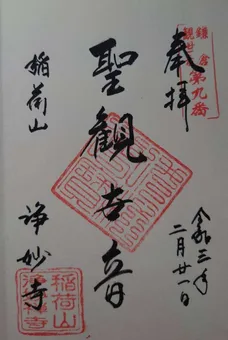 奉拝
鎌倉
観世
第九番
聖観世音
稲荷山
浄妙寺
令和三年
二月廿一日
稲荷山
浄妙寺